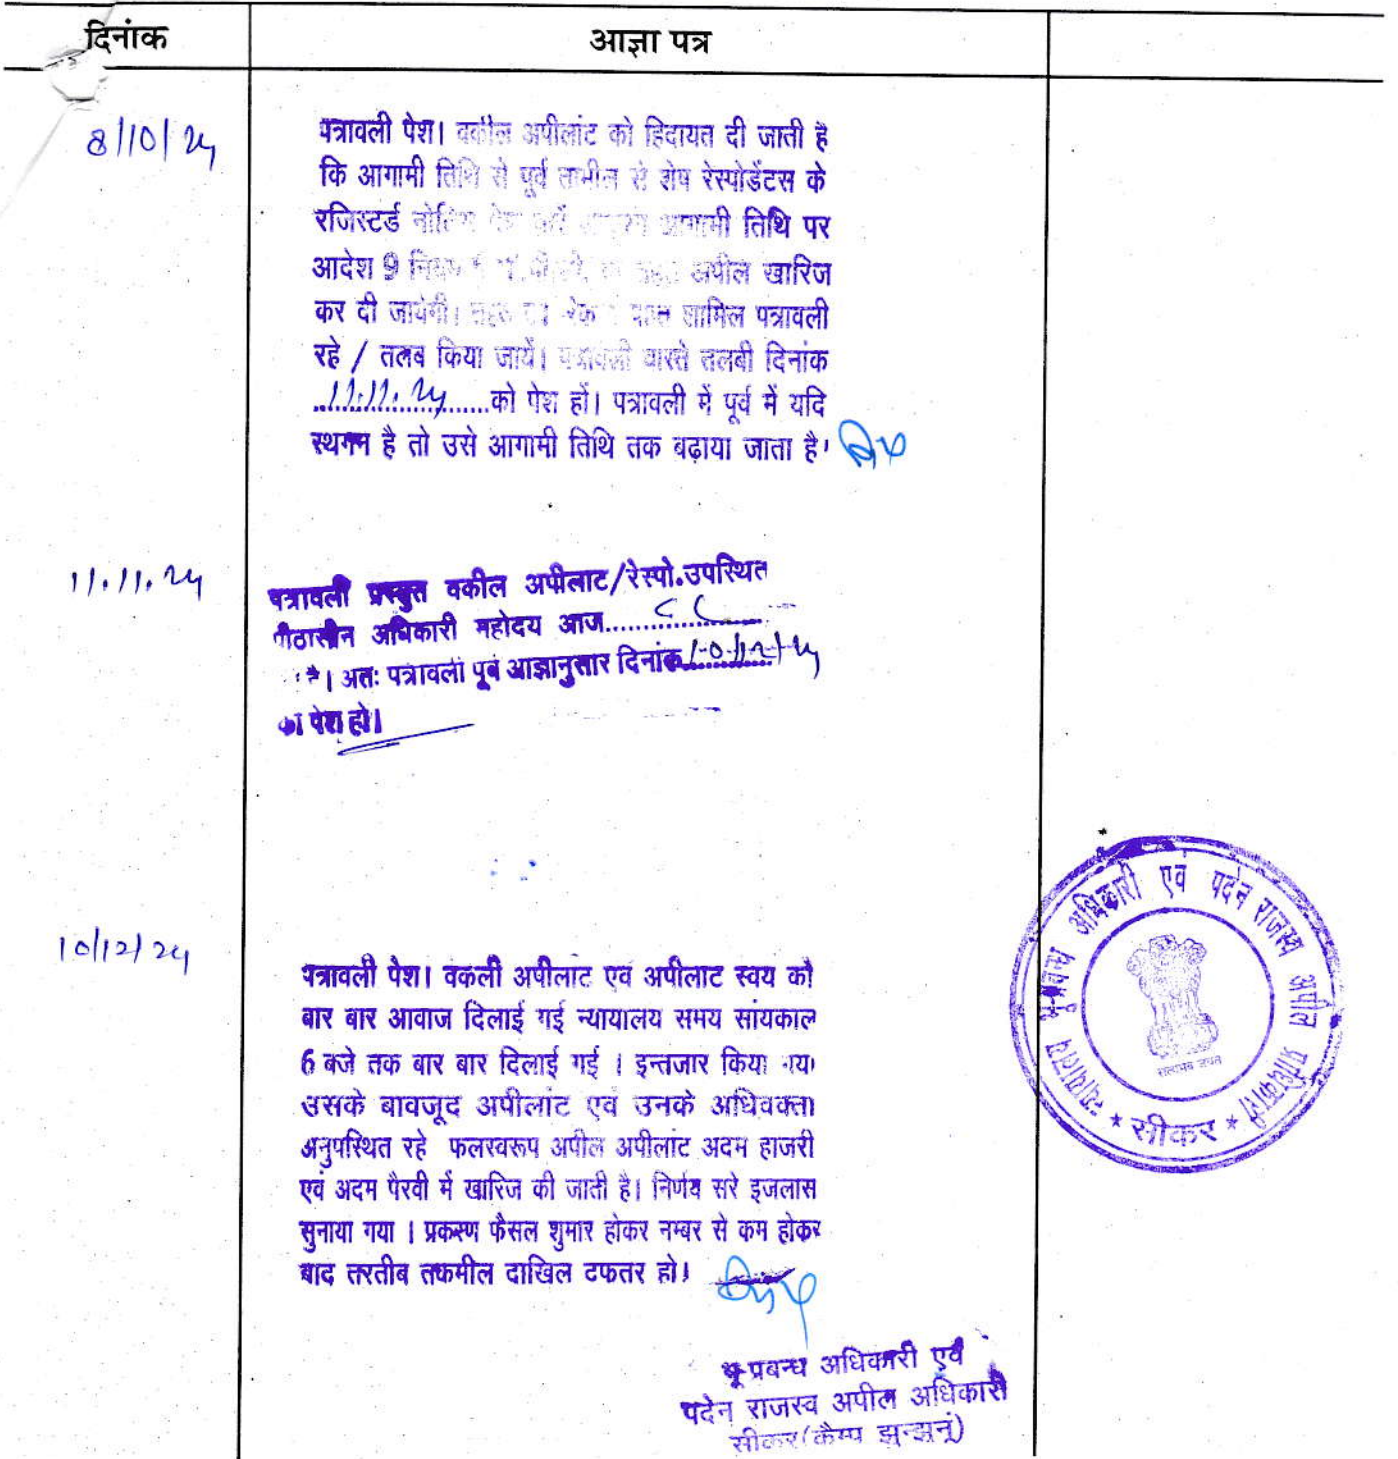 दिनांक
आज्ञा पत्र
8/10/24
पत्रावली पेश। वकील अपीलांट को हिदायत दी जाती है
कि आगामी तिथि से पूर्व तामील से शेष रेस्पोडेंटस के
रजिस्टर्ड आगामी तिथि पर
आदेश 9 अपील खारिज
कर दी जायेगी। शामिल पत्रावली
रहे / तलब किया जायें। पत्रावली वास्ते तलबी दिनांक
11.11.24 को पेश हों। पत्रावली में पूर्व में यदि
स्थगन है तो उसे आगामी तिथि तक बढ़ाया जाता है।
11.11.24
पत्रावली प्रस्तुत वकील अपीलाट/रेस्पो.उपस्थित
पीठासीन अधिकारी महोदय आज
है। अतः पत्रावली पूर्व आज्ञानुसार दिनांक 10/12/24
को पेश हो।
10/12/24
पत्रावली पेश। वकली अपीलाट एवं अपीलाट स्वय को
बार बार आवाज दिलाई गई न्यायालय समय सांयकाल
6 बजे तक बार बार दिलाई गई । इन्तजार किया गया
उसके बावजूद अपीलांट एवं उनके अधिवक्ता
अनुपस्थित रहे फलस्वरूप अपील अपीलांट अदम हाजरी
एवं अदम पैरवी में खारिज की जाती है। निर्णय सरे इजलास
सुनाया गया । प्रकरण फैसल शुमार होकर नम्बर से कम होकर
बाद तरतीब तकमील दाखिल दफतर हो।
भू प्रबन्ध अधिकारी एवं
पदेन राजस्व अपील अधिकारी
सीकर (कैम्प झुन्झनूं)
न्यायालय भू-प्रबन्ध अधिकारी एवं पदेन राजस्व अपील प्राधिकारी
सत्यमेव जयते
* सीकर *